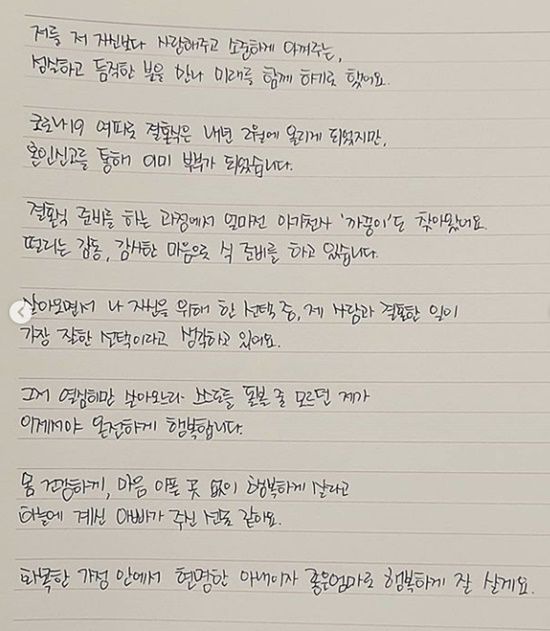 저를 저 자신보다 사랑해주고 소중하게 아껴주는,
성실하고 듬직한 분을 만나 미래를 함께 하기로 했어요.
코로나19 여파로 결혼식은 내년 2월에 올리게 되었지만,
혼인신고를 통해 이미 부부가 되었습니다.
결혼식 준비를 하는 과정에서 얼마전 아가천사 '까꿍이'도 찾아왔어요.
떨리는 감동, 감사한 마음으로 식 준비를 하고 있습니다.
살아오면서 나 자신을 위해 한 선택 중, 제 사랑과 결혼한 일이
가장 잘한 선택이라고 생각하고 있어요.
그저 열심히만 살아오느라 스스로를 돌볼 줄 모르던 제가
이제서야 온전하게 행복합니다.
몸 건강하게, 마음 아픈 곳 없이 행복하게 살라고
하늘에 계신 아빠가 주신 선물 같아요.
화목한 가정 안에서 현명한 아내이자 좋은엄마로 행복하게 잘 살게요.